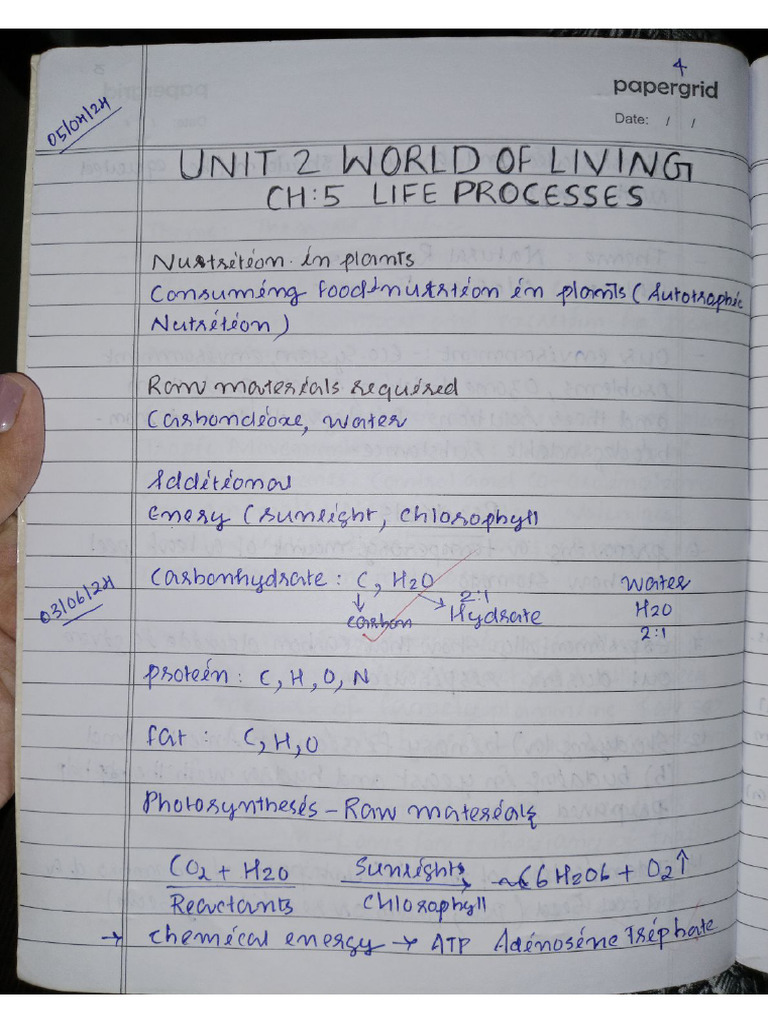 4
papergrid
Date: / /
05/04/24
UNIT 2 WORLD OF LIVING
CH:5 LIFE PROCESSES
Nustrition in plants
Consuming food+nutrition in plants (Autotrophic
Nutrition)
Raw materials required
Carbondioxe, water
Additional
Enery (sunlight, Chlorophyll
03/06/24
Carbonhydrate : C, H2O water
carbon 2:1 Hydrate H2O
2:1
protein : C, H, O, N
fat : C, H, O
Photosynthesis - Raw materials
CO2 + H2O Sunlight → C6H2O6 + O2↑
Reactants Chlorophyll
→ chemical energy → ATP Adinosine Triphate